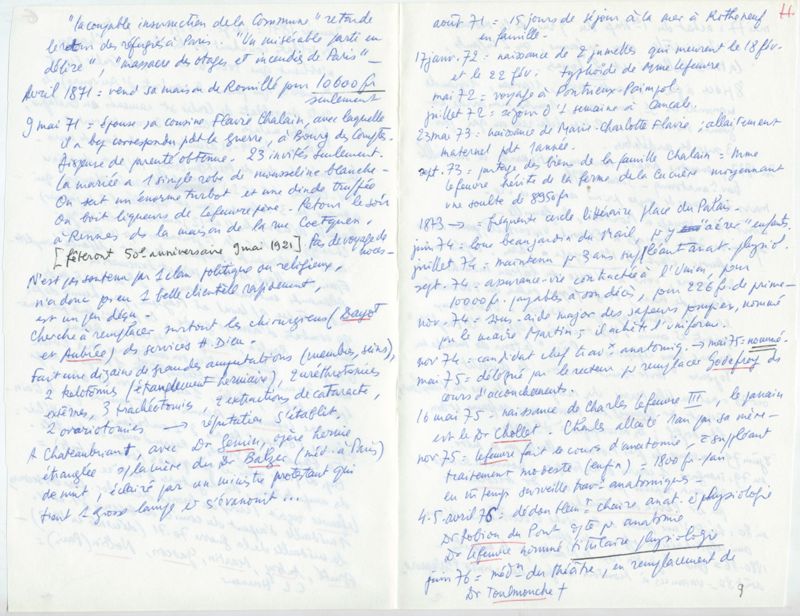 "la coupable insurrection de la Commune" retarde
le retour des réfugiés à Paris. "Un misérable parti en
délire", "massacre des otages et incendies de Paris" -
Avril 1871 = vend sa maison de Romillé pour 10600 fr
seulement
9 mai 71 = épouse sa cousine Flavie Chalain, avec laquelle
il a bcp correspondu pdt la guerre, à Bourg des Comptes.
Dispense de parenté obtenue. 23 invités seulement.
La mariée a 1 simple robe de mousseline blanche -
On sert un énorme turbot et une dinde truffée
On boit liqueurs de Lefeuvre père. Retour le soir
à Rennes de la maison de la rue Coetquen.
[fêteront 50e anniversaire 9 mai 1921] Pas de voyage de
noces -
N'est pas soutenu par 1 clan politique ou religieux,
n'a donc pas eu 1 belle clientèle rapidement,
est un peu déçu -
Cherche à remplacer surtout les chirurgiens (Dayot
et Aubrée) des services H. Dieu.
Fait une dizaine de grandes amputations (membres, seins),
2 kélotomies (étranglement herniaire), 2 uréthrotomies
externes, 3 trachéotomies, 2 extractions de cataracte,
2 ovariotomies → réputation s'établit.
A Chateaubriant, avec Dr opère hernie
étranglée du Dr Balzer (méd. à Paris)
de nuit, éclairé par un ministre protestant qui
tient 1 grosse lampe et s'évanouit ...
H.
août 71 = 15 jours de séjour à la mer à Rothéneuf
en famille -
17 janv. 72 = naissance de 2 jumelles qui meurent le 18 fév.
et le 22 fév. typhoïde de Mme Lefeuvre
mai 72 = voyage à Pontrieux-Paimpol
juillet 72 = séjour d'1 semaine à Cancale.
23 mai 73 = naissance de Marie-Charlotte Flavie; allaitement
maternel pdt 1 année.
sept. 73 = partage des biens de la famille Chalain = Mme
Lefeuvre hérite de la ferme de la moyennant
une soulte de 8950 fr
1873 → fréquente cercle littéraire place du Palais.
juin 74 = loue beau jardin du Mail, pr y "aérer" enfants.
juillet 74 = maintenu pr 3 ans suppléant anat. physiol.
sept. 74 = assurance-vie contractée à l'Union, pour
10000 fr. payables à son décès, pour 226 fr de prime -
nov. 74 = sous-aide major des sapeurs pompiers, nommé
par le maire Martin; il achète l'uniforme.
nov 74 = candidat chef travx anatomiq. → mai 75 = nommé.
mai 75 = délégué par le recteur pr remplacer Godefroy ds
cours d'accouchements.
16 mai 75 = naissance de Charles Lefeuvre III, le parrain
est le Dr Chollet. Charles allaité 1 an par sa mère -
nov 75 = Lefeuvre fait le cours d'anatomie, suppléant
traitement modeste (enfin) = 1800 fr. par an
en m̂ temps surveille travx anatomiques -
4-5 avril 76 = dédoublemt chaire anat. et physiologie
Dr Robiou du Pont pr anatomie
Dr Lefeuvre nommé titulaire physiologie
juin 76 = médn du théâtre, en remplacement de
Dr Toulmouche †
9